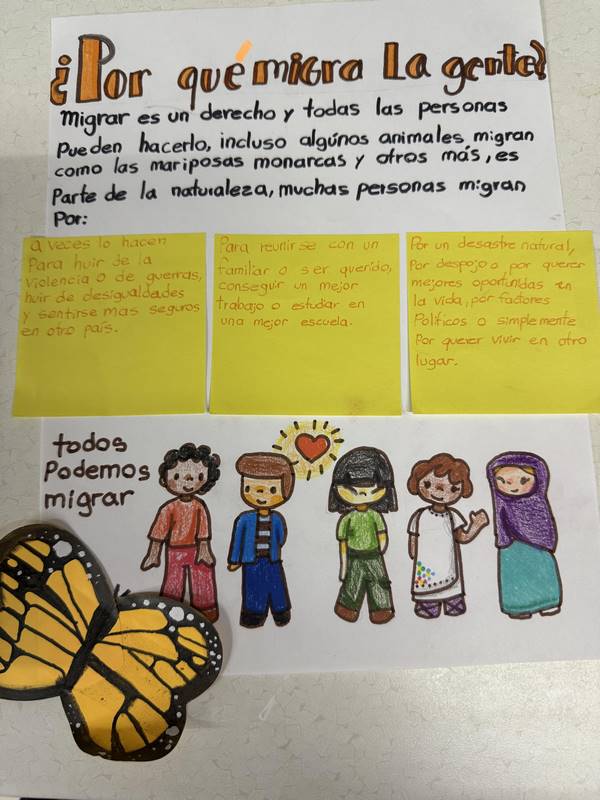 ¿Por qué migra La gente?
Migrar es un derecho y todas las personas
Pueden hacerlo, incluso algúnos animales migran
como las mariposas monarcas y otros más, es
Parte de la naturaleza, muchas personas migran
Por:
a veces lo hacen
Para huir de la
violencia o de guerras,
huir de desigualdades
y sentirse mas seguros
en otro país.
Para reunirse con un
familiar o ser querido,
conseguir un mejor
trabajo o estudiar en
una mejor escuela.
Por un desastre natural,
Por despojo o por querer
mejores oportunidas en
la vida, por factores
Políticos o simplemente
Por querer vivir en otro
lugar.
todos
Podemos
migrar